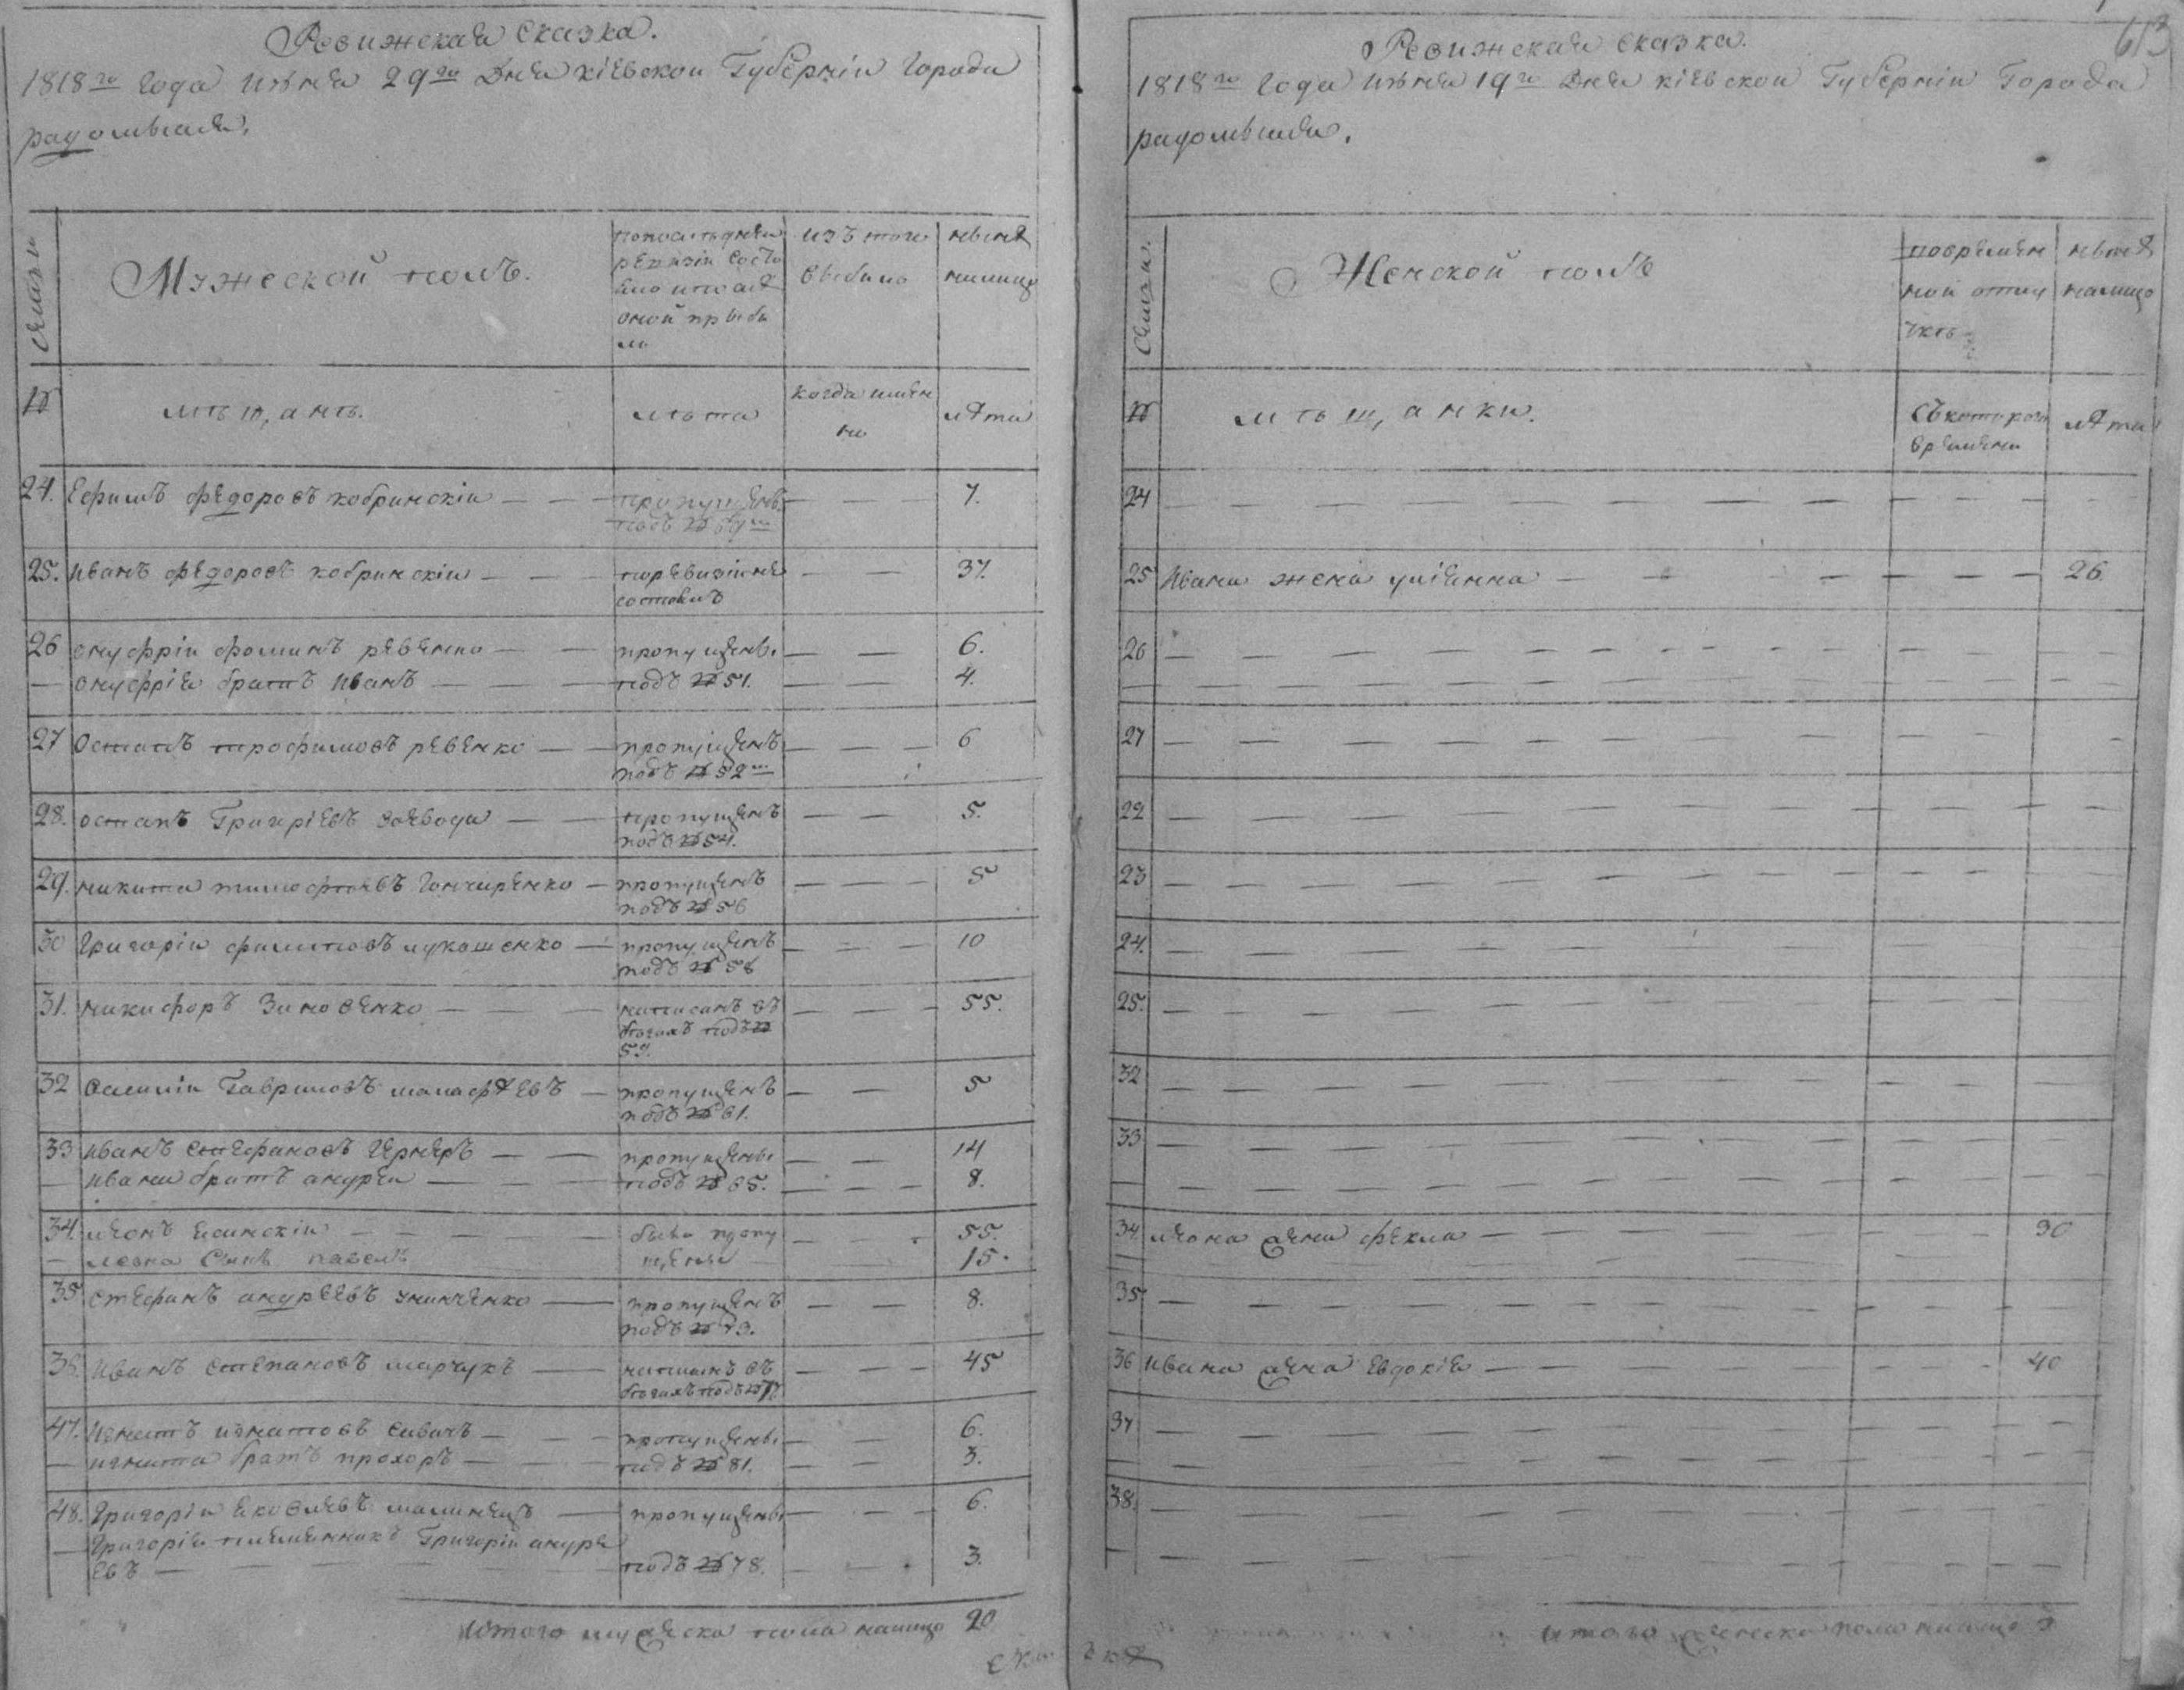 Ревижская сказка.
1818го года июня 29го дня кіевской Губерніи города
радомысля,
семьи
Мужеской полъ.
попоследнеи
ревизіи состо
яло ипосле
оной прыбы
ло
изъ того
выбыло
ныне
налицо
№
мъщане.
лъта
когда имен
но
лѣта
24. Ефимъ федоровъ кобринскіи — — пропущенъ подъ № — — 7.
25. Иванъ федоровъ кобринскіи — — поревизіи не состоялъ — — 37.
26 онуфріи фоминъ ревенко — — пропущены — — 6.
— онуфрія братъ Иванъ — — подъ № 51. — — 4.
27 Остапъ трофимовъ ревенко — — пропущенъ подъ № 52м — — 6
28. остапъ Григоріевъ воевода — — пропущенъ подъ № 54. — — 5.
29. никита тимофеевъ Гончаренко — пропущенъ подъ № 56 — — 5
30 Григоріи филиповъ лукашенко — пропущенъ подъ № 58 — — 10
31. никифоръ Зиновенко — — написанъ въ бегахъ подъ № 59. — — 55.
32 Василіи Гавриловъ малафѣевъ — пропущенъ подъ № 61. — — 5
33 иванъ стефановъ Чернеръ — — пропущены — — 14
— ивана братъ андреи — — подъ № 65. — — 8.
34. леонъ Ясинскіи — — были пропу — — 55.
— леона Сынъ павелъ щены 15.
35 стефанъ андреевъ — пропущенъ подъ № 73. — — 8.
36. Иванъ степановъ марчукъ — написанъ въ бегахъ подъ № 77. — — 45
47. Игнатъ игнатовъ сивачъ — — пропущены — 6.
— игната братъ прохоръ — — подъ № 81. — — 3.
48. Григоріи яковлевъ малинецъ — пропущены — — 6.
— Григорія племянникъ Григоріи андре
евъ — — подъ № 78. — — 3.
Итого мужеска пола налицо 20
Ревижская сказка.
613
1818го Года июня 19го дня кіевской Губерніи Города
радомысля.
Семьи.
Женской полъ
повремен
ной отлу
чкъ
ныне
налицо
№
мъщанки.
Съкоторого
времени
лѣта
24 — — —
25 Ивана жена уліянна — — — 26.
26 — — —
— — —
27 — — —
22 — — —
23 — — —
24. — — —
25. — — —
32 — — —
33 — — —
— — —
34 леона жена фекла — — 30
35 — — —
36 Ивана жена Евдокія — — 40
37 — — —
— — —
38. — — —
— — —
итого женска пола налицо 3